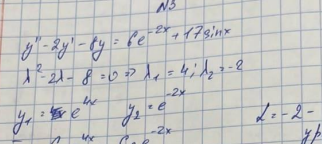 N3
y'' - 2y' - 8y = 6e^{-2x} + 17 sin x
λ² - 2λ - 8 = 0 ⇒ λ₁ = 4; λ₂ = -2
y₁ = e^{4x} y₂ = e^{-2x}
L = -2 -
ур
4x e^{-2x}